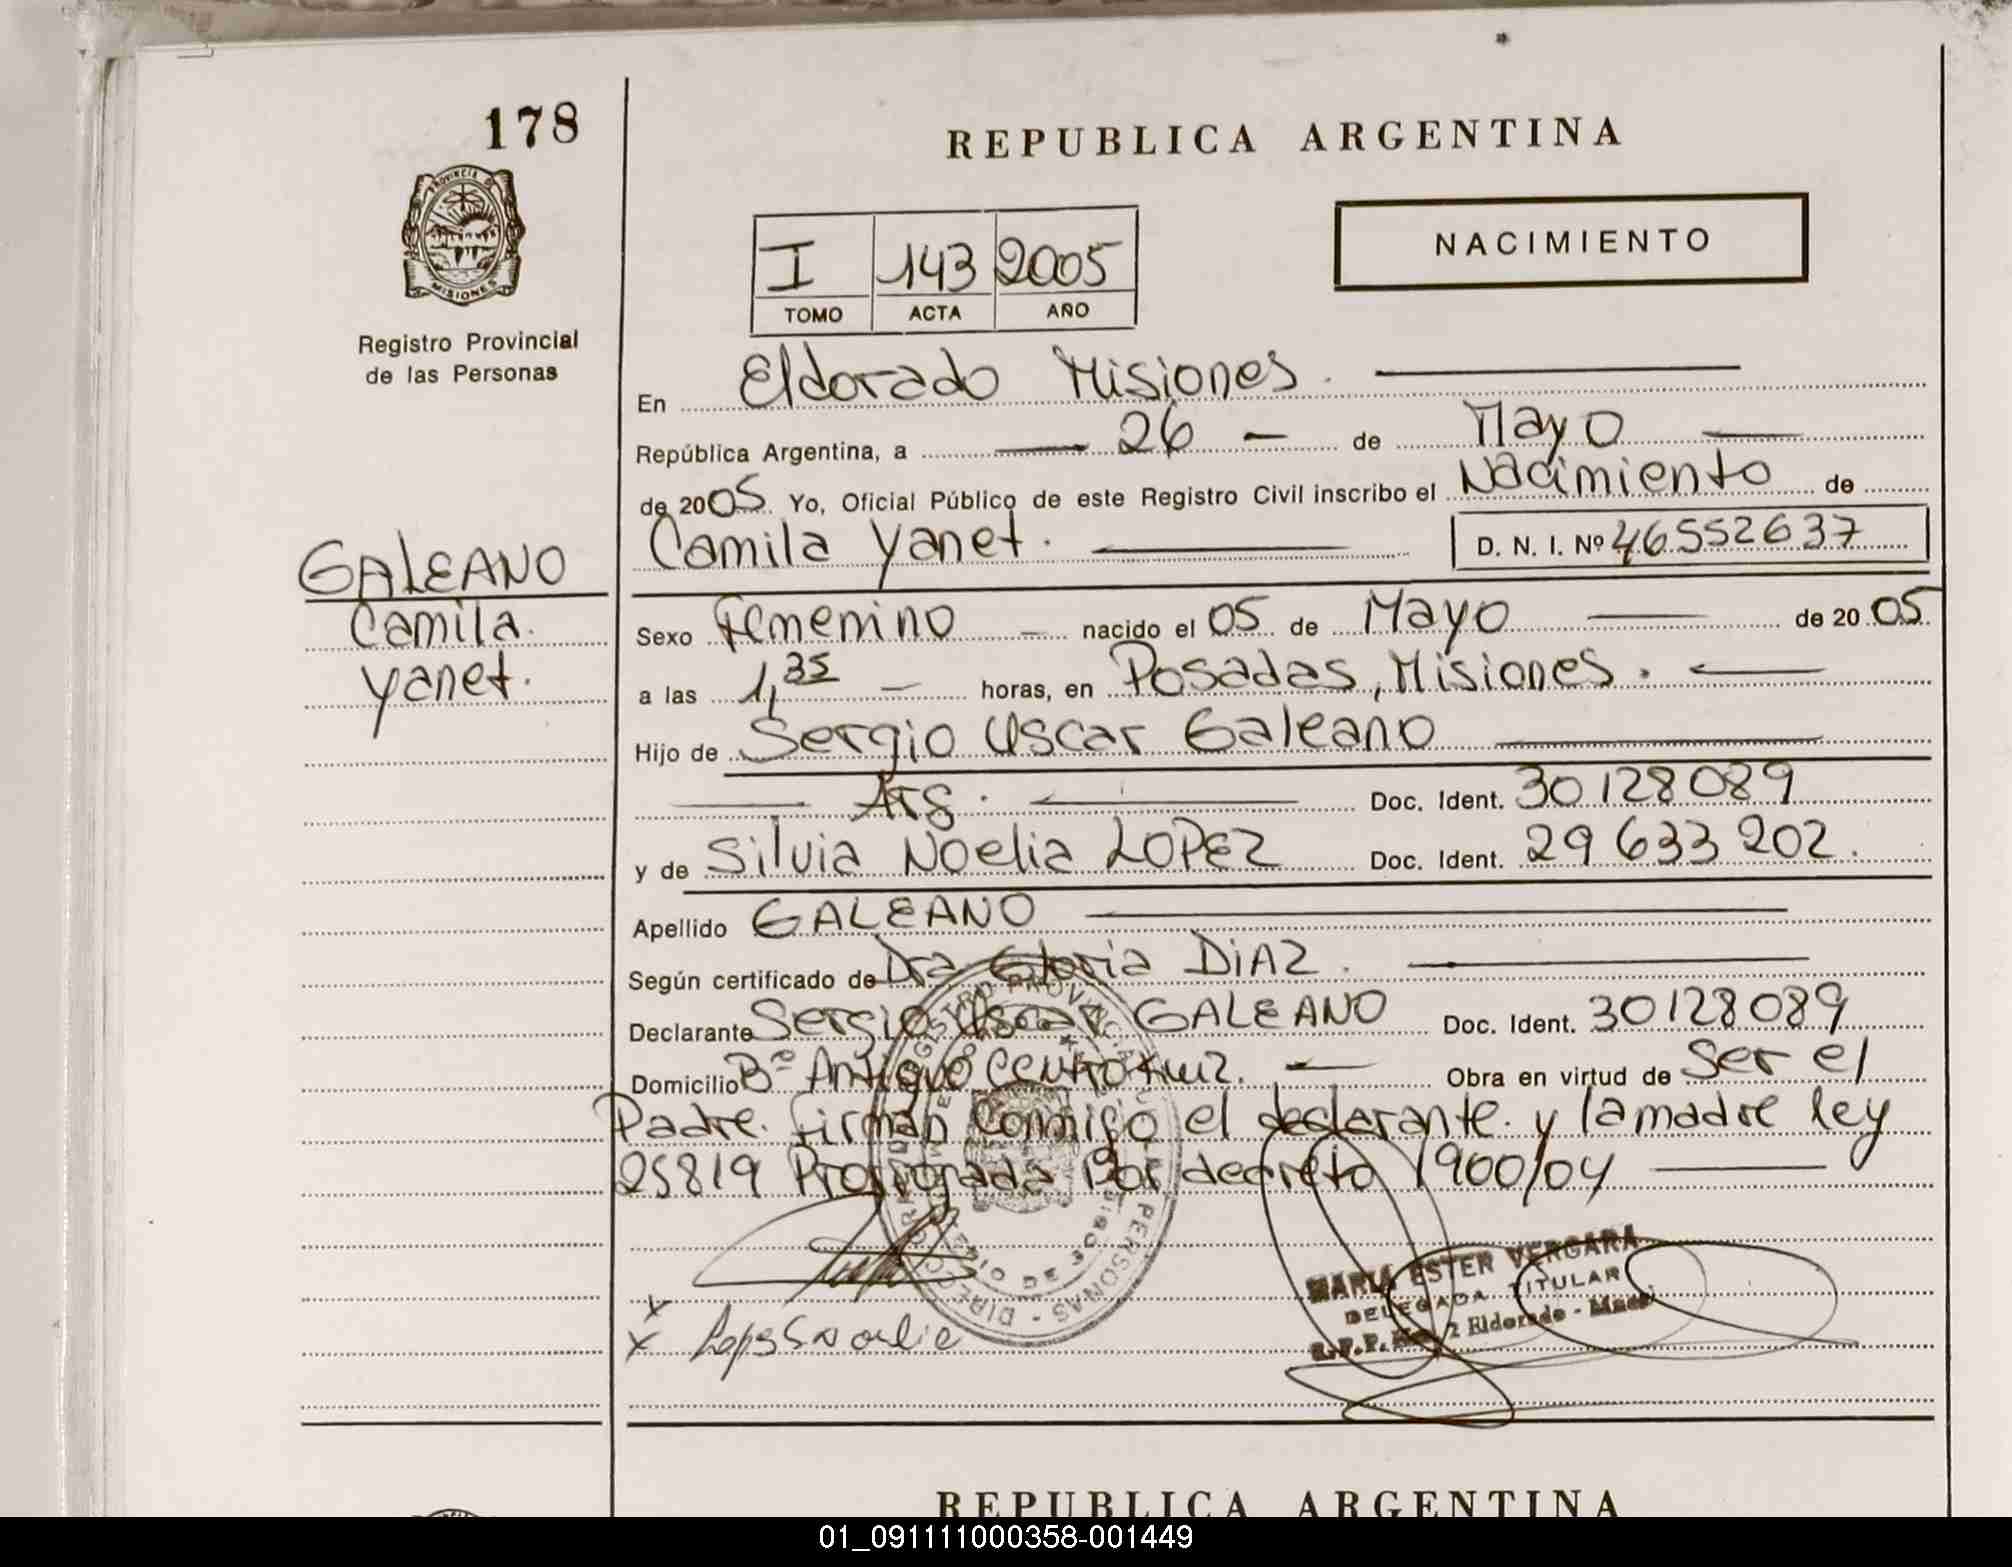 178
REPUBLICA ARGENTINA
PROVINCIA DE
MISIONES
Registro Provincial
de las Personas
NACIMIENTO
I 143 2005
TOMO ACTA AÑO
En Eldorado Misiones.
República Argentina, a 26 de Mayo
de 2005 Yo, Oficial Público de este Registro Civil inscribo el Nacimiento de
Camila Yanet. D. N. I. Nº 46552637
GALEANO
Camila.
Yanet.
Sexo Femenino nacido el 05 de Mayo de 2005
a las 1,35 horas, en Posadas, Misiones.
Hijo de Sergio Oscar Galeano
Arg. Doc. Ident. 30128089
y de Silvia Noelia LOPEZ Doc. Ident. 29 633 202.
Apellido GALEANO
Según certificado de Dra Gloria DIAZ.
Declarante Sergio Oscar GALEANO Doc. Ident. 30128089
Domicilio Bº Antiguo Obra en virtud de Ser el
Padre. firman Conmigo el declarante y la madre ley
25819 Prorrogada Por decreto 1900/04
MARIA ESTER VERGARA
DELEGADA TITULAR
R.P.P. 2 Eldorado - Mnes
x
x
REPUBLICA ARGENTINA
01_091111000358-001449